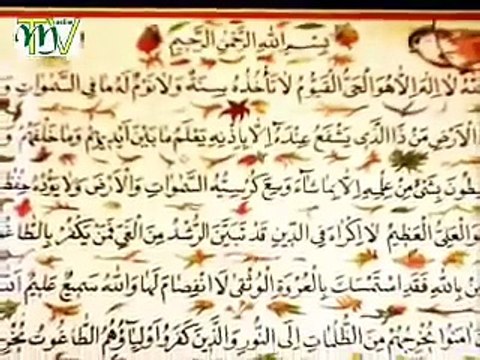 بِسْمِ اللهِ الرَّحْمٰنِ الرَّحِيْمِ
لَا اِلٰهَ اِلَّا هُوَ الْحَىُّ الْقَيُّوْمُ لَا تَأْخُذُهٗ سِنَةٌ وَّلَا نَوْمٌ لَهٗ مَا فِى السَّمٰوٰتِ وَ
الْاَرْضِ مَنْ ذَا الَّذِىْ يَشْفَعُ عِنْدَهٗٓ اِلَّا بِاِذْنِهٖ يَعْلَمُ مَا بَيْنَ اَيْدِيْهِمْ وَمَا خَلْفَهُمْ وَ
يْطُوْنَ بِشَىْءٍ مِّنْ عِلْمِهٖٓ اِلَّا بِمَا شَآءَ وَسِعَ كُرْسِيُّهُ السَّمٰوٰتِ وَالْاَرْضَ وَلَا يَؤُدُهٗ حِفْظُ
وَ الْعَلِىُّ الْعَظِيْمُ لَآ اِكْرَاهَ فِى الدِّيْنِ قَدْ تَّبَيَّنَ الرُّشْدُ مِنَ الْغَىِّ فَمَنْ يَّكْفُرْ بِالطَّاغُ
نْ بِاللهِ فَقَدِ اسْتَمْسَكَ بِالْعُرْوَةِ الْوُثْقٰى لَا انْفِصَامَ لَهَا وَاللهُ سَمِيْعٌ عَلِيْمٌ
اٰمَنُوْا يُخْرِجُهُمْ مِّنَ الظُّلُمٰتِ اِلَى النُّوْرِ وَالَّذِيْنَ كَفَرُوْٓا اَوْلِيَآؤُهُمُ الطَّاغُوْتُ